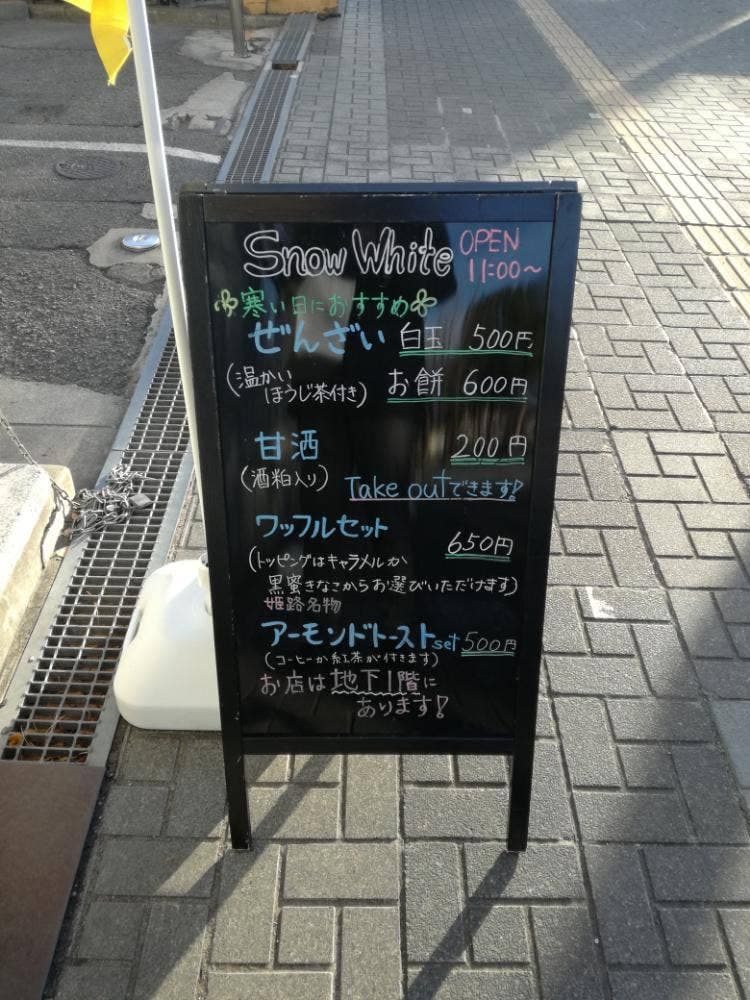 Snow White OPEN
11:00～
寒い日におすすめ
ぜんざい 白玉 500円
(温かい お餅 600円
ほうじ茶付き)
甘酒 200円
(酒粕入り) Take outできます!
ワッフルセット 650円
(トッピングはキャラメルか
黒蜜きなこからお選びいただけます)
姫路名物
アーモンドトーストset 500円
(コーヒーか紅茶が付きます)
お店は地下1階に
あります!